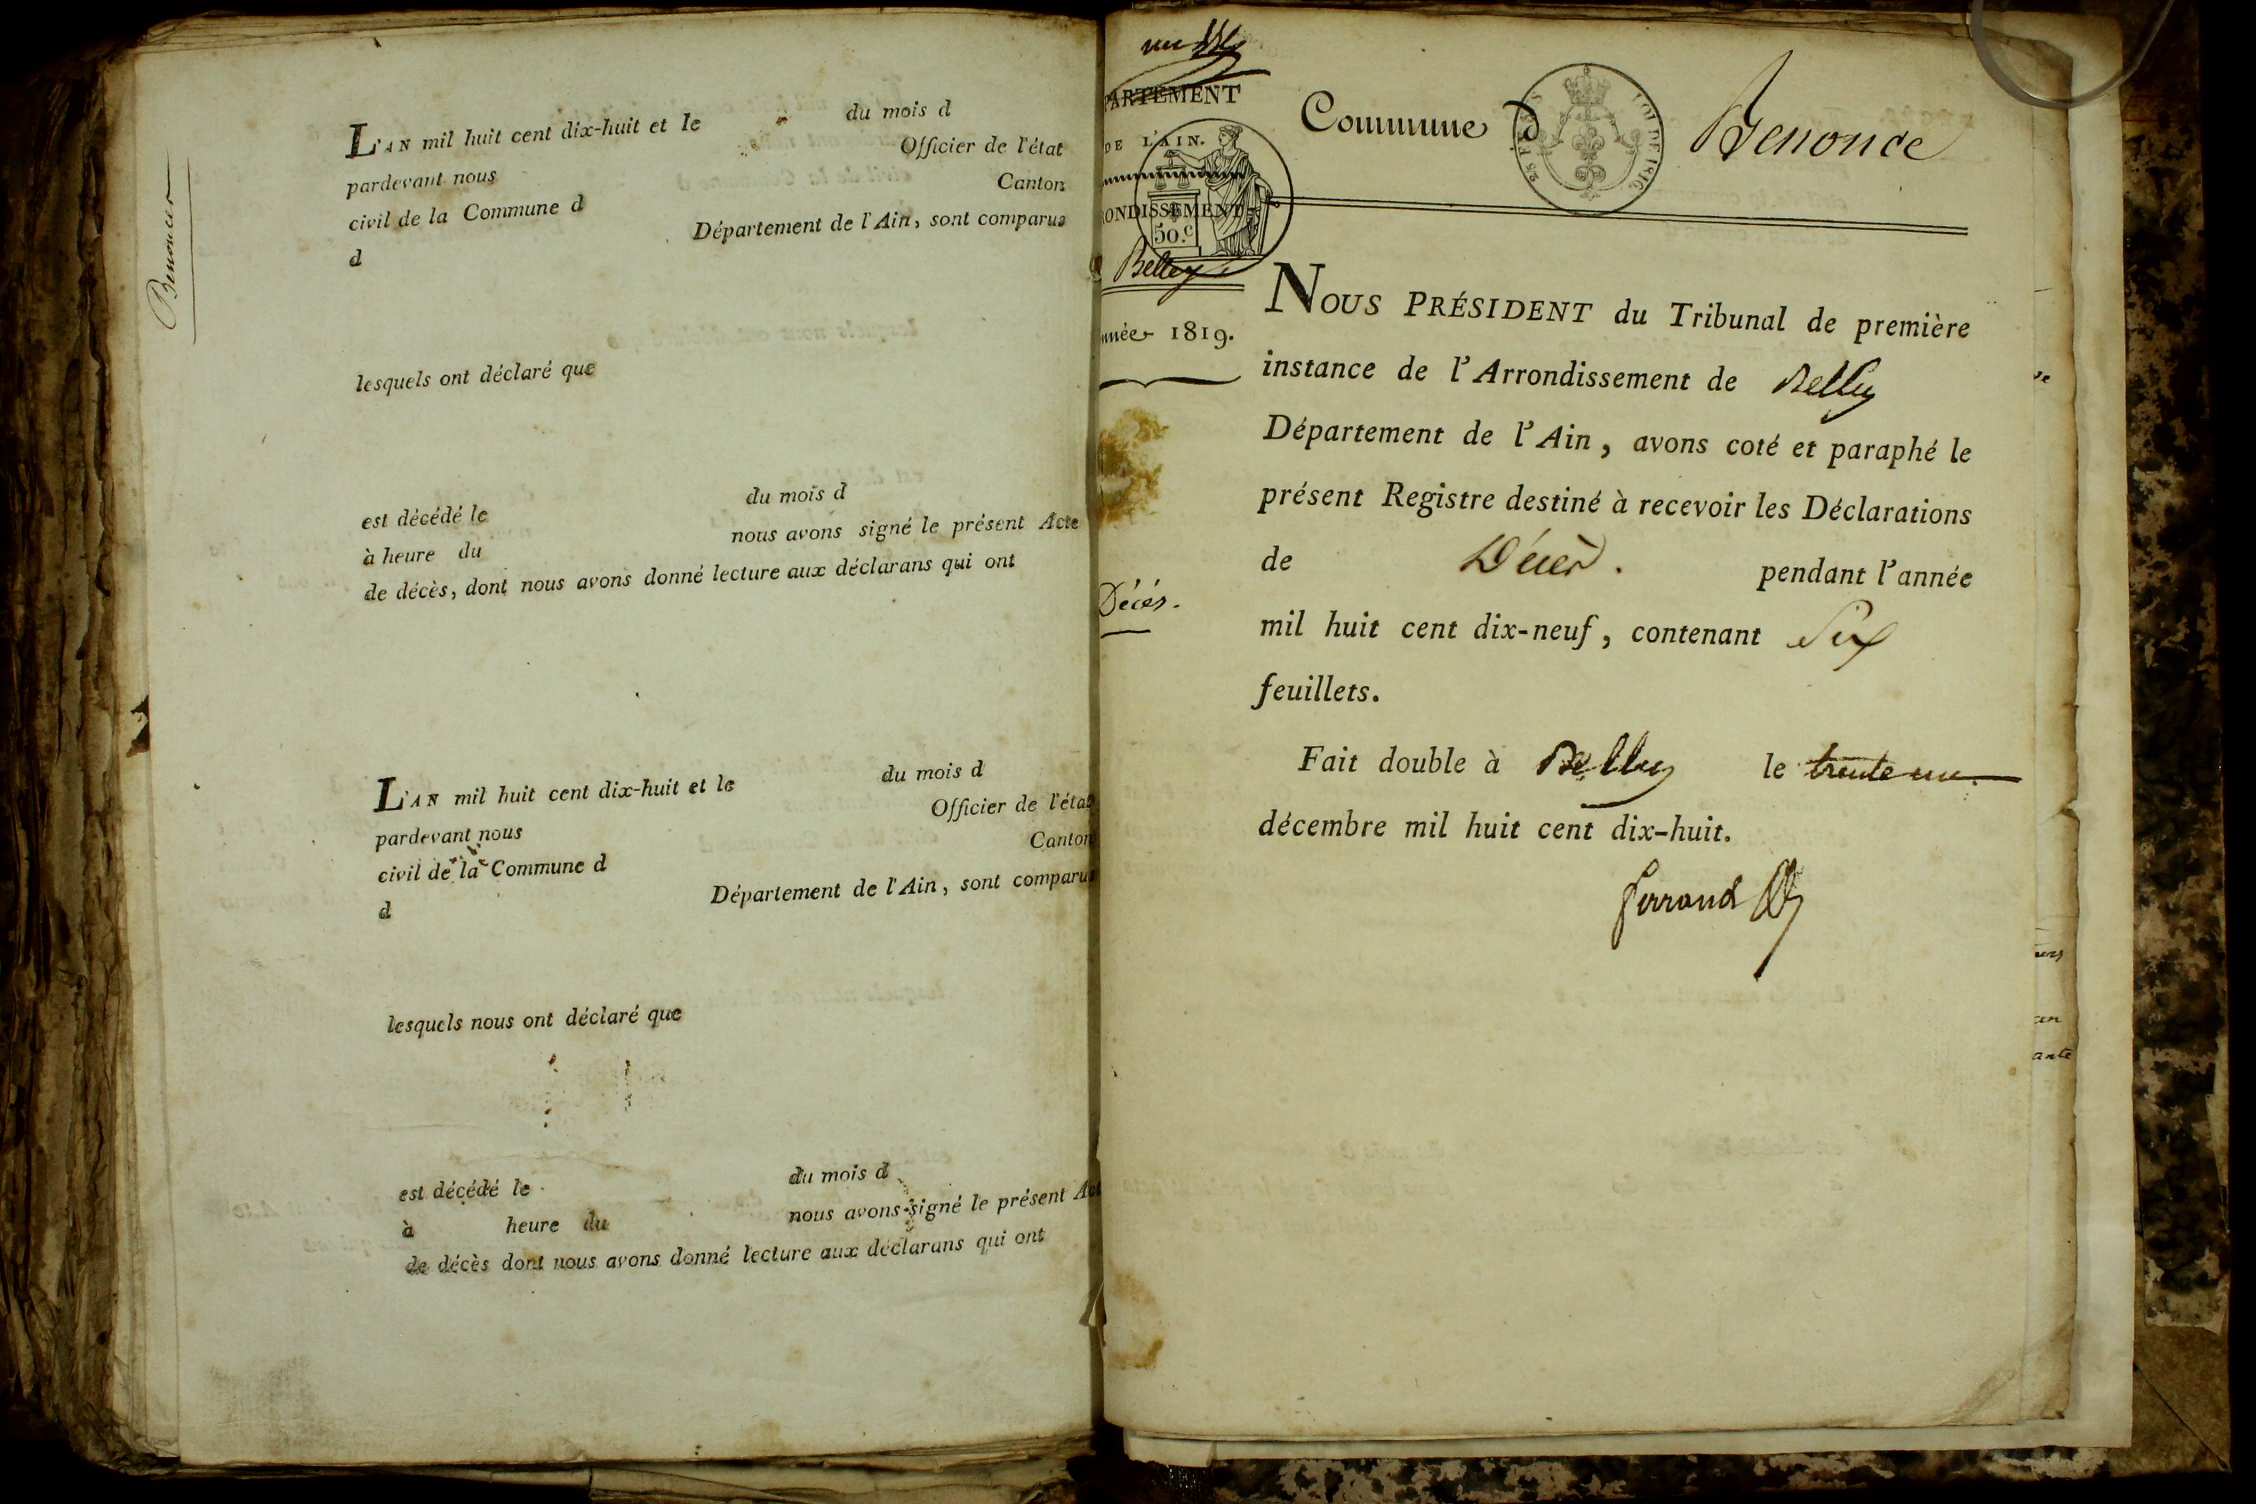 Benonces
L'AN mil huit cent dix-huit et le du mois d
pardevant nous Officier de l'état
civil de la Commune d Canton
d Département de l'Ain, sont comparus
lesquels ont déclaré que
est décédé le du mois d
à heure du nous avons signé le présent Acte
de décès, dont nous avons donné lecture aux déclarans qui ont
L'AN mil huit cent dix-huit et le du mois d
pardevant nous Officier de l'état
civil de la Commune d Canton
d Département de l'Ain, sont comparus
lesquels nous ont déclaré que
est décédé le du mois d
à heure du nous avons signé le présent Act
de décès dont nous avons donné lecture aux déclarans qui ont
PARTEMENT
DE L'AIN.
RONDISSEMENT
50.c
Belley
nnée 1819.
Décès.
Commune d Benonce
LOI DE 1816.
NOUS PRÉSIDENT du Tribunal de première
instance de l'Arrondissement de Belley
Département de l'Ain, avons coté et paraphé le
présent Registre destiné à recevoir les Déclarations
de Décès. pendant l'année
mil huit cent dix-neuf, contenant Six
feuillets.
Fait double à Belley le trente un
décembre mil huit cent dix-huit.
ferrand